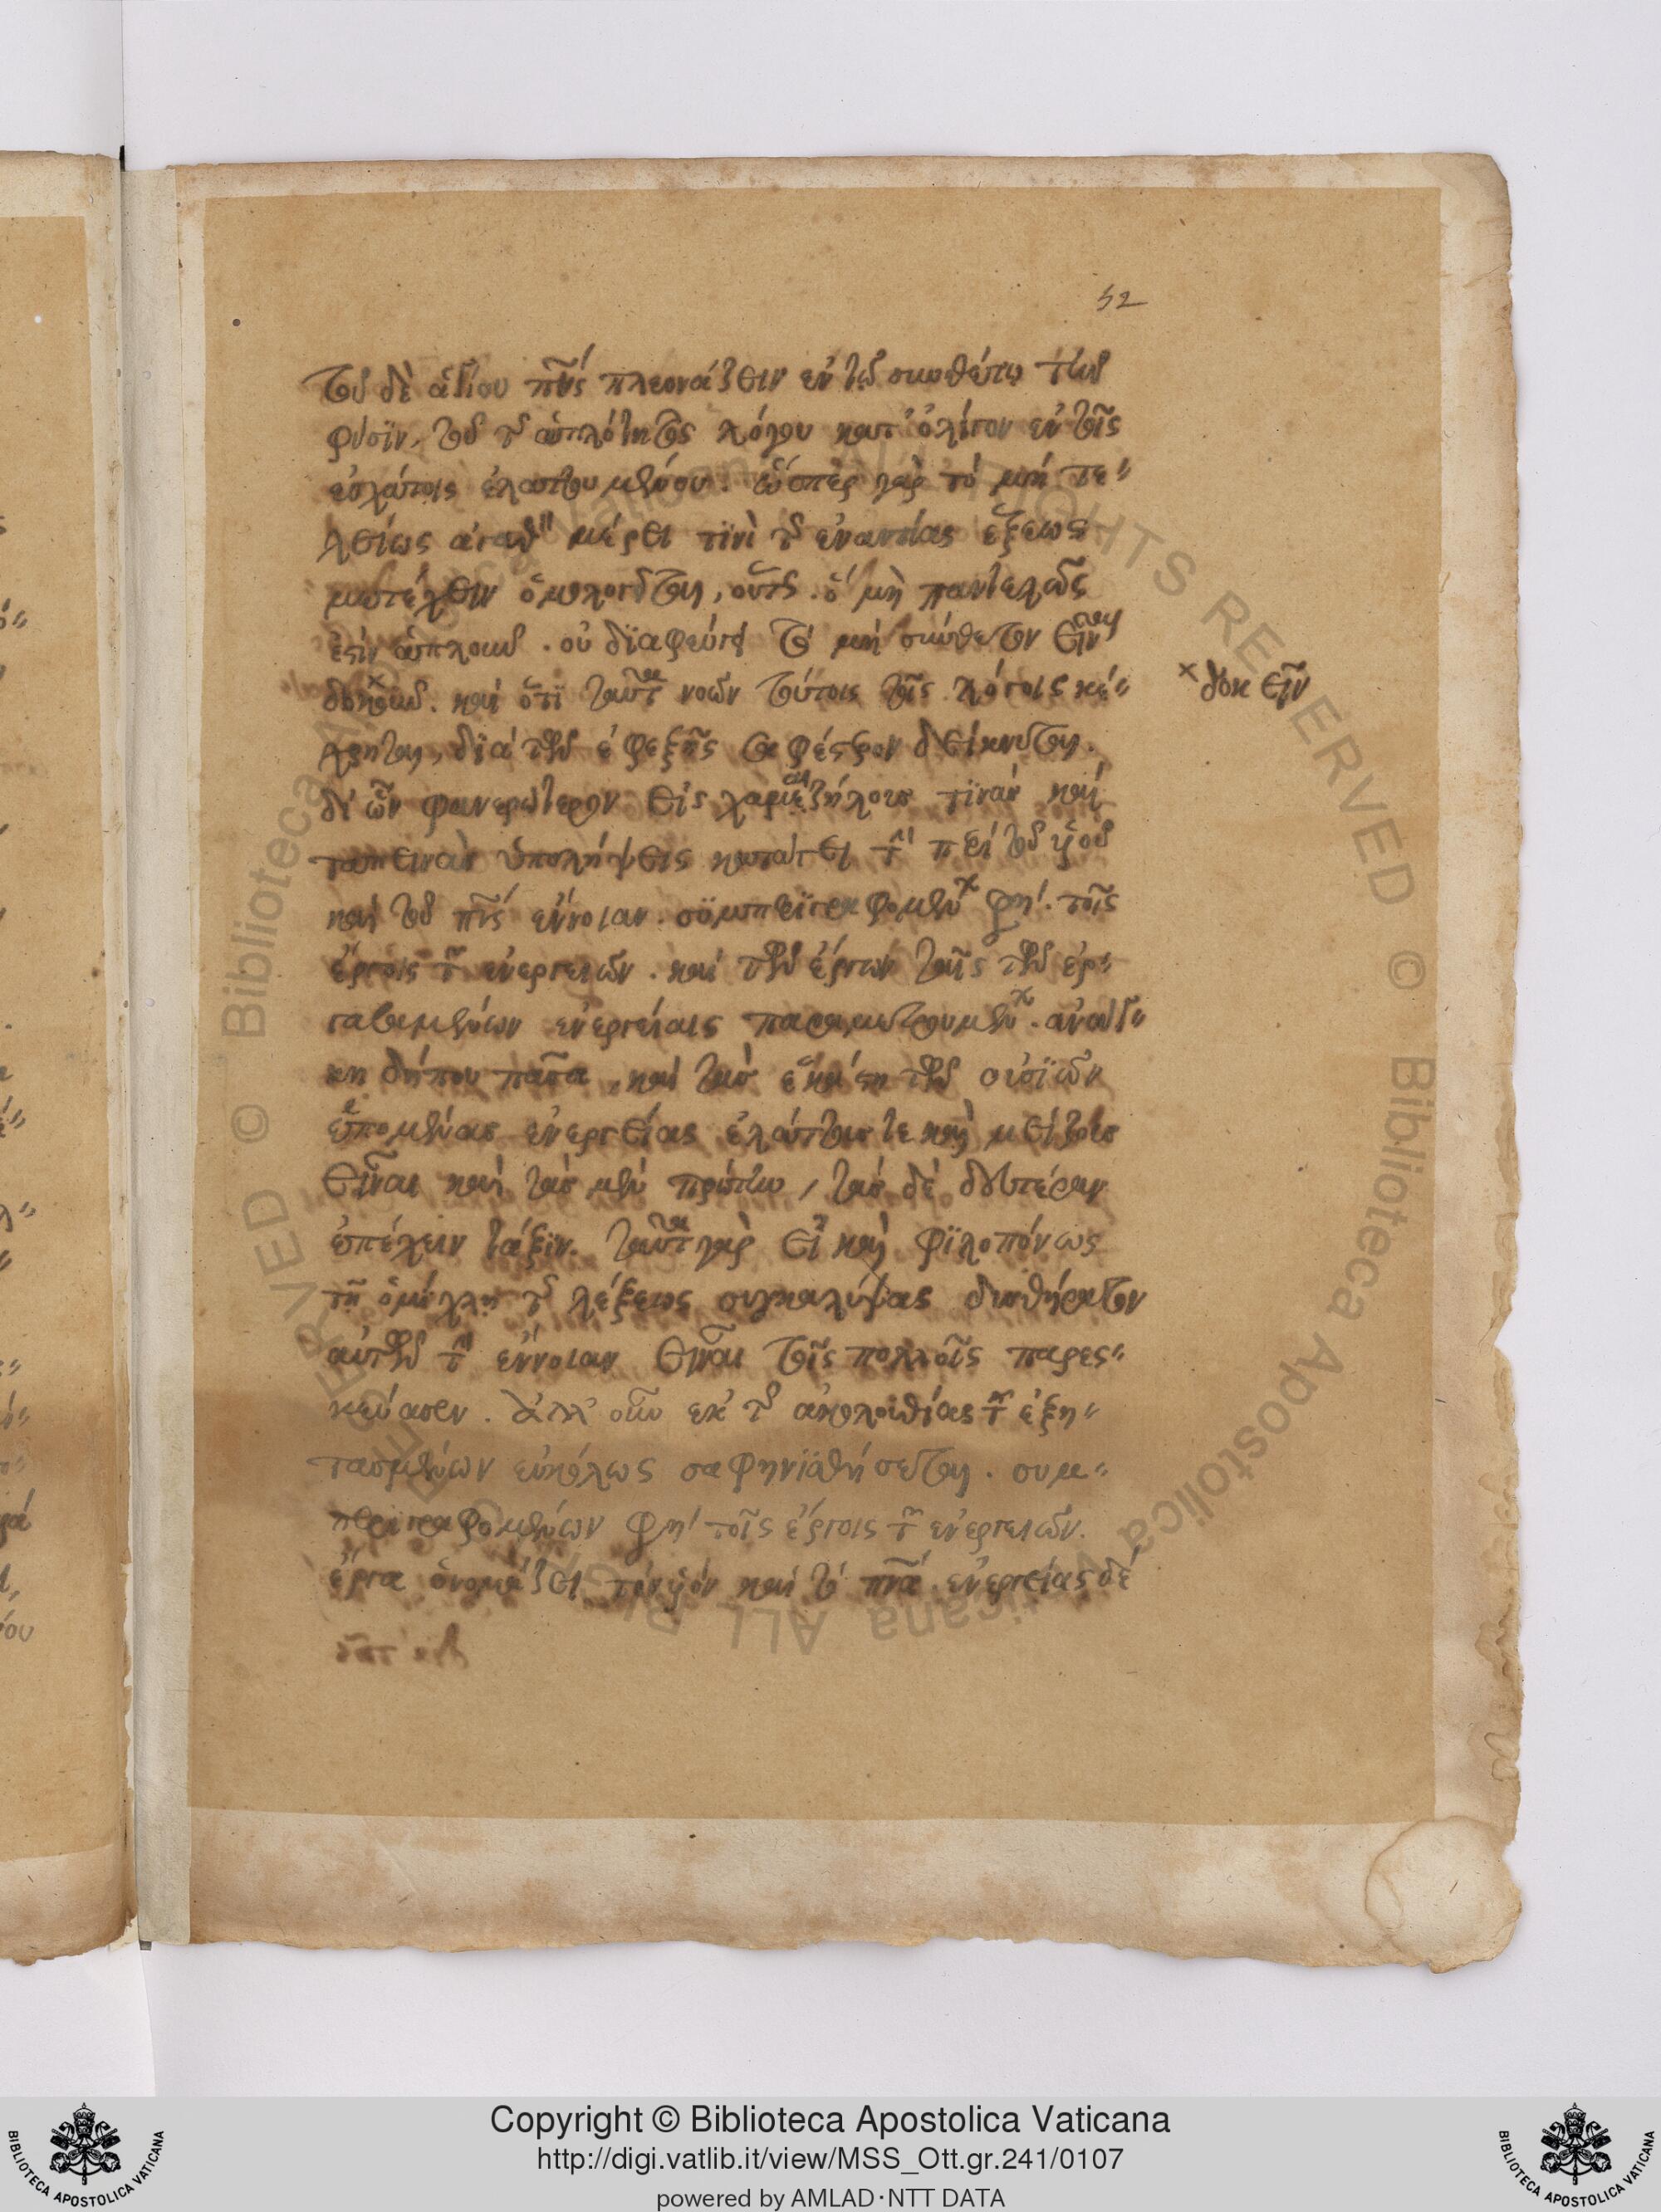 52
τοῦ δὲ ἁγίου πνς πλεονάζειν ἐν τῷ συνθέτῳ τὴν
φύσϊν, τοῦ τῆς ἁπλότητος λόγου κατ' ὀλίγον ἐν τοῖς
ἐλαττουμένου. ὥσπερ γὰρ τὸ μὴ τε"
λείως ἀγαθὸν μέρει τϊνὶ τῆς ἐναντίας ἕξεως
μετέχειν ὁμολογεῖται, οὕτως ὁ μὴ παντελῶς
ἐστὶν ἁπλοῦν. οὐ δϊαφεύγει τὸ μὴ σύνθετον εἶναι
δοκεῖν. καὶ ὅτϊ ταῦτα νοῶν τούτοις τοῖς λόγοις κέ"
× δοκεῖν
χρηται, δϊὰ τῶν ἐφεξῆς σαφέστερον δείκνυται.
δι' ὧν φανερώτερον εἰς χαμαιζήλους τϊνὰς καὶ
ταπεινὰς ὑπολήψεις κατάγει τὴν περὶ τοῦ υἱοῦ
καὶ τοῦ πνς ἔννοιαν. συμπεριγραφομένων φησὶ τοῖς
ἔργοις τῶν ἐνεργειῶν. καὶ τῶν ἔργων ταῖς τῶν ἐρ"
γασαμένων ἐνεργείαις παραμετρουμένων. ἀνάγ"
κη δήπου πᾶσα, καὶ τὰς ἑκάστῃ τῶν οὐσϊῶν
ἑπομένας ἐνεργείας ἐλάττους τε καὶ μείζους
εἶναι καὶ τὰς μὲν πρώτην, τὰς δὲ δευτέραν
ἐπέχειν τάξϊν. ταῦτα γὰρ εἰ καὶ φϊλοπόνως
τῇ ὁμίχλῃ τῆς λέξεως συγκαλύψας δυσθήρατον
αὐτῶν τὴν ἔννοιαν εἶναι τοῖς πολλοῖς παρες"
κεύασεν. ἀλλ' οὖν ἐκ τῆς ἀκολουθίας τῶν ἐξη"
τασμένων εὐκόλως σαφηνϊσθήσεται. συμ"
περιγραφομένων φησὶ τοῖς ἔργοις τῶν ἐνεργειῶν.
ἔργα ὀνομάζει τὸν υἱὸν καὶ τὸ πνα. ἐνεργείας δὲ